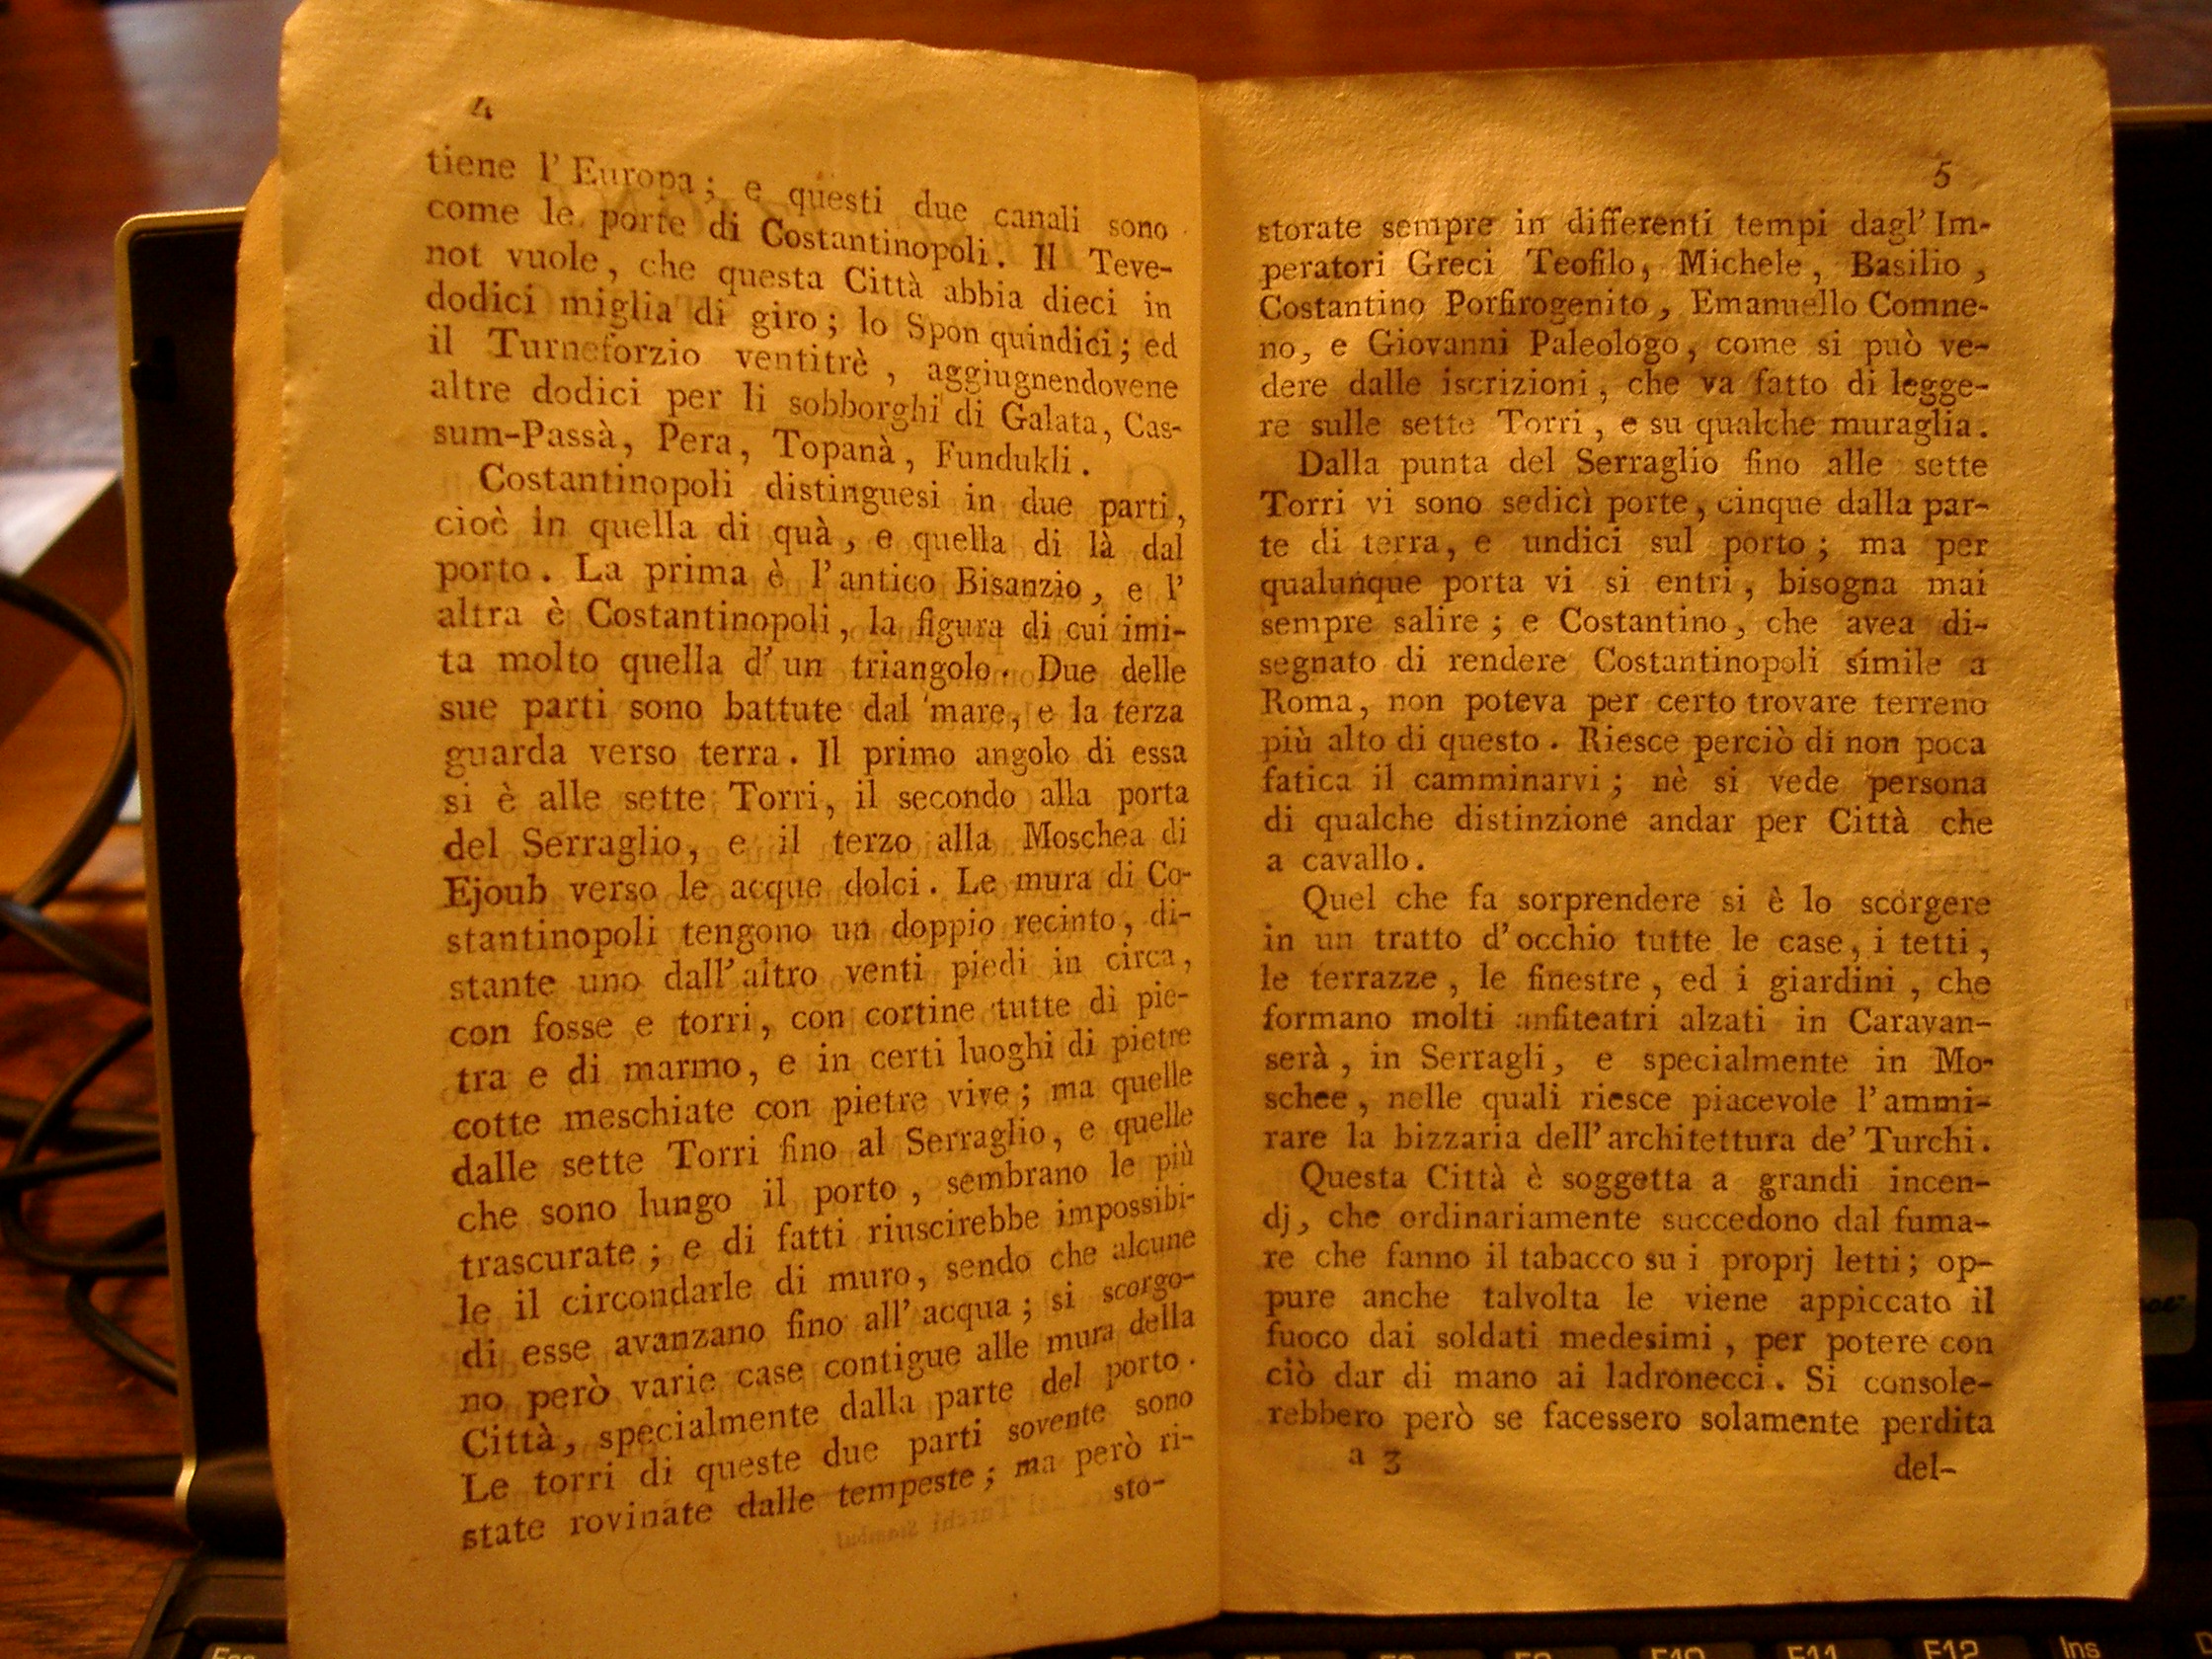 4
tiene l' Europa; e questi due canali sono
come le porte di Costantinopoli. Il Teve-
not vuole, che questa Città abbia dieci in
dodici miglia di giro; lo Spon quindici; ed
il Turneforzio ventitrè, aggiugnendovene
altre dodici per li sobborghi di Galata, Cas-
sum-Passà, Pera, Topanà, Fundukli.
Costantinopoli distinguesi in due parti,
cioè in quella di quà, e quella di là dal
porto. La prima è l'antico Bisanzio, e l'
altra è Costantinopoli, la figura di cui imi-
ta molto quella d'un triangolo. Due delle
sue parti sono battute dal mare, e la terza
guarda verso terra. Il primo angolo di essa
si è alle sette Torri, il secondo alla porta
del Serraglio, e il terzo alla Moschea di
Ejoub verso le acque dolci. Le mura di Co-
stantinopoli tengono un doppio recinto, di-
stante uno dall'altro venti piedi in circa,
con fosse e torri, con cortine tutte di pie-
tra e di marmo, e in certi luoghi di pietre
cotte meschiate con pietre vive; ma quelle
dalle sette Torri fino al Serraglio, e quelle
che sono lungo il porto, sembrano le più
trascurate; e di fatti riuscirebbe impossibi-
le il circondarle di muro, sendo che alcune
di esse avanzano fino all'acqua; si scorgo-
no però varie case contigue alle mura della
Città, specialmente dalla parte del porto.
Le torri di queste due parti sovente sono
state rovinate dalle tempeste; ma però ri-
sto-
5
storate sempre in differenti tempi dagl'Im-
peratori Greci Teofilo, Michele, Basilio,
Costantino Porfirogenito, Emanuello Comne-
no, e Giovanni Paleologo, come si può ve-
dere dalle iscrizioni, che va fatto di legge-
re sulle sette Torri, e su qualche muraglia.
Dalla punta del Serraglio fino alle sette
Torri vi sono sedicì porte, cinque dalla par-
te di terra, e undici sul porto; ma per
qualunque porta vi si entri, bisogna mai
sempre salire; e Costantino, che avea di-
segnato di rendere Costantinopoli simile a
Roma, non poteva per certo trovare terreno
più alto di questo. Riesce perciò di non poca
fatica il camminarvi; nè si vede persona
di qualche distinzione andar per Città che
a cavallo.
Quel che fa sorprendere si è lo scorgere
in un tratto d'occhio tutte le case, i tetti,
le terrazze, le finestre, ed i giardini, che
formano molti anfiteatri alzati in Caravan-
serà, in Serragli, e specialmente in Mo-
schee, nelle quali riesce piacevole l'ammi-
rare la bizzaria dell'architettura de' Turchi.
Questa Città è soggetta a grandi incen-
dj, che ordinariamente succedono dal fuma-
re che fanno il tabacco su i proprj letti; op-
pure anche talvolta le viene appiccato il
fuoco dai soldati medesimi, per potere con
ciò dar di mano ai ladronecci. Si console-
rebbero però se facessero solamente perdita
a 3 del-
F10 F11 F12 Ins